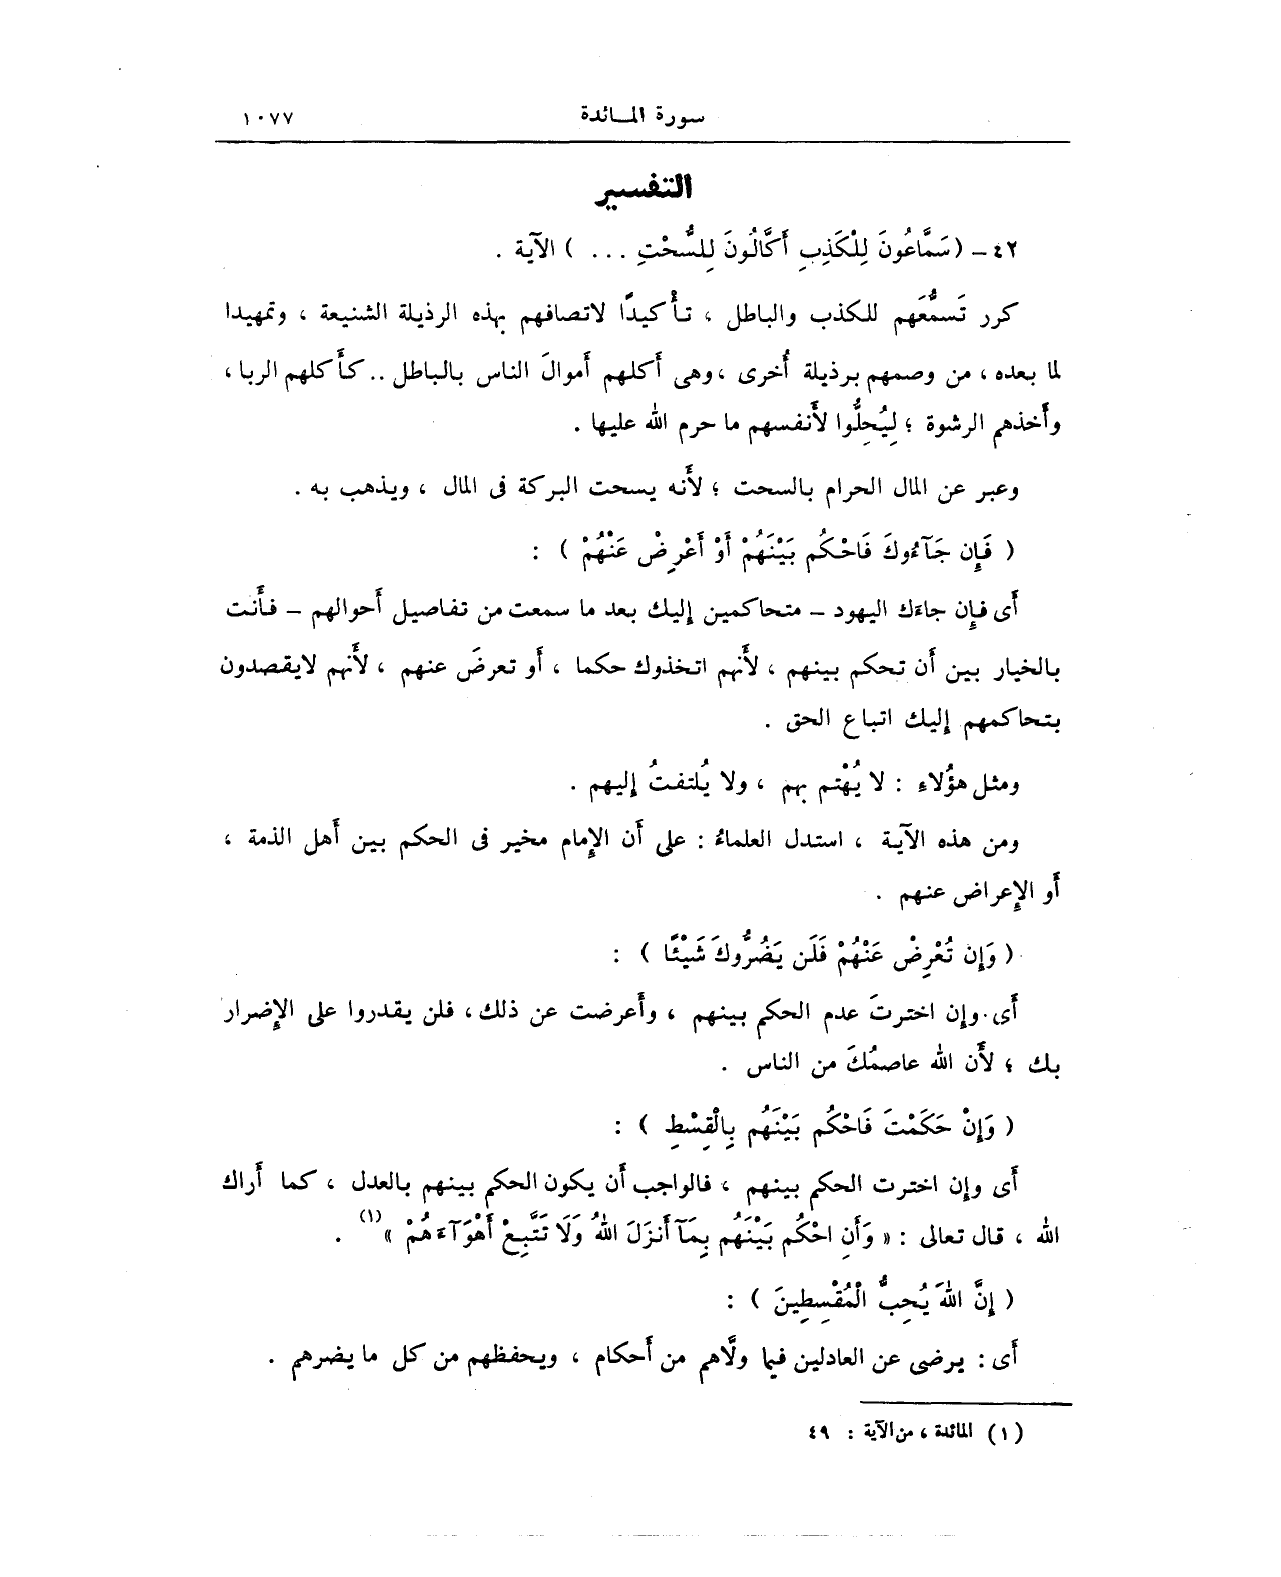 سورة المائدة ١٠٧٧
التفسير
٤٢ – (سَمَّاعُونَ لِلْكَذِبِ أَكَّالُونَ لِلسُّحْتِ ... ) الآية .
كرر تَسمُّعَهم للكذب والباطل ، تأْكيدًا لاتصافهم بهذه الرذيلة الشنيعة ، وتمهيدا
لما بعده ، من وصمهم برذيلة أُخرى ، وهى أَكلهم أَموالَ الناس بالباطل .. كأَكلهم الربا ،
وأَخذهم الرشوة ؛ لِيُحِلُّوا لأَنفسهم ما حرم الله عليها .
وعبر عن المال الحرام بالسحت ؛ لأَنه يسحت البركة فى المال ، ويذهب به .
( فَإِن جَآءُوكَ فَاحْكُم بَيْنَهُمْ أَوْ أَعْرِضْ عَنْهُمْ ) :
أَى فإِن جاءَك اليهود – متحاكمين إليك بعد ما سمعت من تفاصيل أَحوالهم – فأَنت
بالخيار بين أَن تحكم بينهم ، لأَنهم اتخذوك حكما ، أَو تعرضَ عنهم ، لأَنهم لايقصدون
بتحاكمهم إليك اتباع الحق .
ومثل هؤُلاءِ : لا يُهْتم بهم ، ولا يُلتفتُ إليهم .
ومن هذه الآية ، استدل العلماءُ : على أَن الإِمام مخير فى الحكم بين أَهل الذمة ،
أَو الإِعراض عنهم .
( وَإِن تُعْرِضْ عَنْهُمْ فَلَن يَضُرُّوكَ شَيْئًا ) :
أَى وإِن اخترتَ عدم الحكم بينهم ، وأَعرضت عن ذلك ، فلن يقدروا على الإِضرار
بك ؛ لأَن الله عاصمُكَ من الناس .
( وَإِنْ حَكَمْتَ فَاحْكُم بَيْنَهُم بِالْقِسْطِ ) :
أَى وإن اخترت الحكم بينهم ، فالواجب أَن يكون الحكم بينهم بالعدل ، كما أَراك
الله ، قال تعالى : « وَأَنِ احْكُم بَيْنَهُم بِمَآ أَنزَلَ اللهُ وَلَا تَتَّبِعْ أَهْوَآءَهُمْ »(١) .
( إِنَّ اللهَ يُحِبُّ الْمُقْسِطِينَ ) :
أَى : يرضى عن العادلين فيما ولَّاهم من أَحكام ، ويحفظهم من كل ما يضرهم .
(١) المائدة ، من الآية : ٤٩